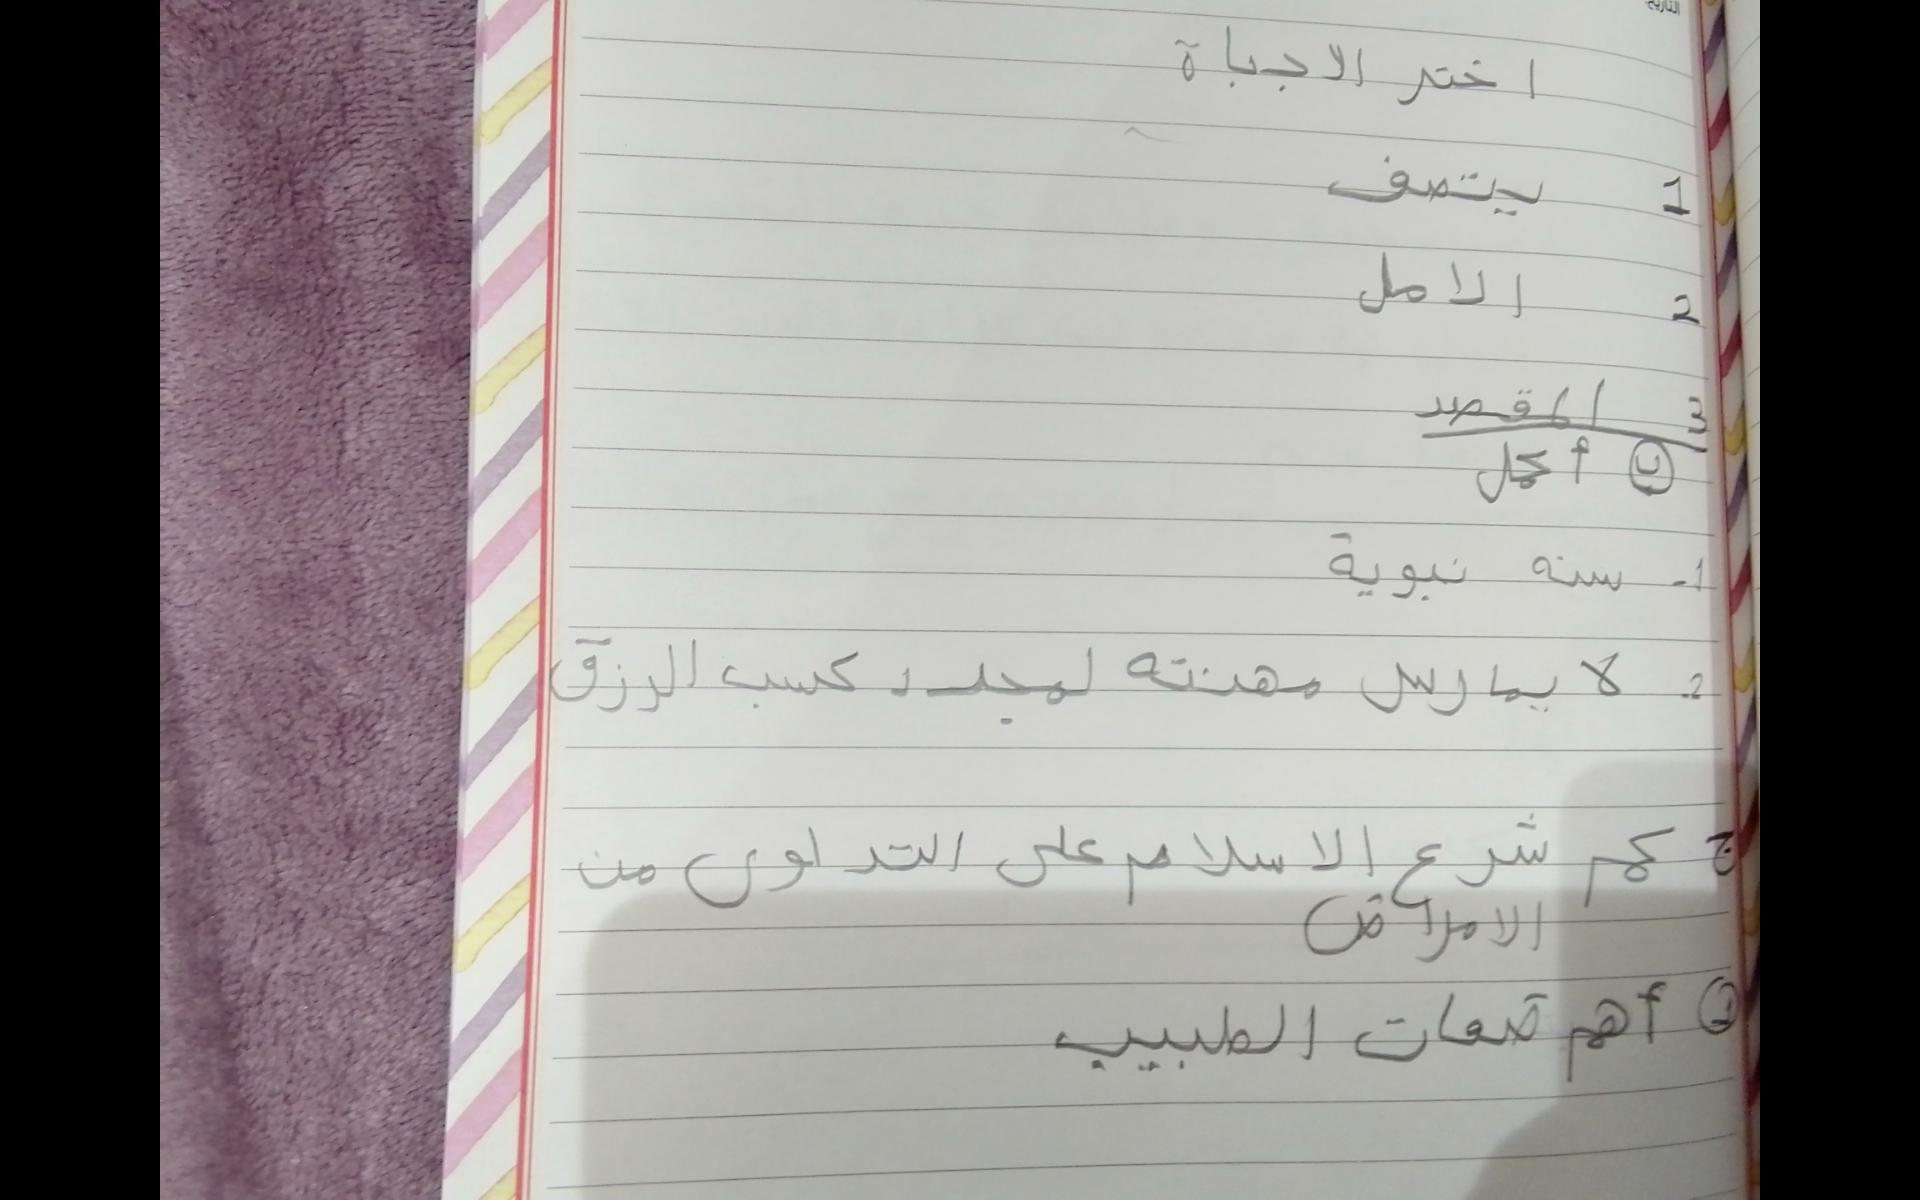 التاريخ
اختر الاجباة
1 يتصف
2 الامل
3 المقصد
ب أكمل
1- سنه نبوية
2- لا يمارس مهنته لمجرد كسب الرزق
ج كم شرع الاسلام على التداوي من
الامراض
د أهم صفات الطبيب